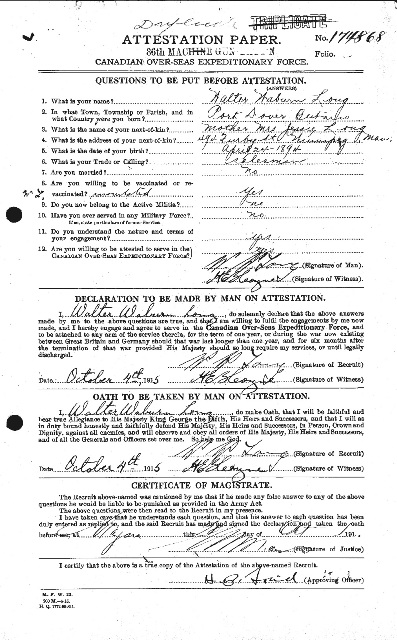 TRIPLICATE
ATTESTATION PAPER.
No. 174868
36th MACHINE GUN
Folio.
CANADIAN OVER-SEAS EXPEDITIONARY FORCE.
QUESTIONS TO BE PUT BEFORE ATTESTATION.
(ANSWERS)
1. What is your name? Walter Waburn Long
2. In what Town, Township or Parish, and in what Country were you born? Port Dover Ontario
3. What is the name of your next-of-kin? Mother Mrs Jessie Long
4. What is the address of your next-of-kin? 494 Furby St Winnipeg, Man.
5. What is the date of your birth? April 1894
6. What is your Trade or Calling? Salesman
7. Are you married? no
8. Are you willing to be vaccinated or re-
vaccinated? inoculated Yes
9. Do you now belong to the Active Militia? no
10. Have you ever served in any Military Force? no
If so, state particulars of former Service.
11. Do you understand the nature and terms of
your engagement? yes
12. Are you willing to be attested to serve in the
CANADIAN OVER-SEAS EXPEDITIONARY FORCE? yes
W W Long (Signature of Man).
(Signature of Witness).
DECLARATION TO BE MADE BY MAN ON ATTESTATION.
I, Walter Waburn Long, do solemnly declare that the above answers
made by me to the above questions are true, and that I am willing to fulfil the engagements by me now
made, and I hereby engage and agree to serve in the Canadian Over-Seas Expeditionary Force, and
to be attached to any arm of the service therein, for the term of one year, or during the war now existing
between Great Britain and Germany should that war last longer than one year, and for six months after
the termination of that war provided His Majesty should so long require my services, or until legally
discharged.
W W Long (Signature of Recruit)
Date October 4th 1915 (Signature of Witness)
OATH TO BE TAKEN BY MAN ON ATTESTATION.
I, Walter Waburn Long, do make Oath, that I will be faithful and
bear true Allegiance to His Majesty King George the Fifth, His Heirs and Successors, and that I will as
in duty bound honestly and faithfully defend His Majesty, His Heirs and Successors, in Person, Crown and
Dignity, against all enemies, and will observe and obey all orders of His Majesty, His Heirs and Successors,
and of all the Generals and Officers set over me. So help me God.
W W Long (Signature of Recruit)
Date October 4th 1915 (Signature of Witness)
CERTIFICATE OF MAGISTRATE.
The Recruit above-named was cautioned by me that if he made any false answer to any of the above
questions he would be liable to be punished as provided in the Army Act.
The above questions were then read to the Recruit in my presence.
I have taken care that he understands each question, and that his answer to each question has been
duly entered as replied to, and the said Recruit has made and signed the declaration and taken the oath
before me, at Niagara this day of Oct 191
(Signature of Justice)
I certify that the above is a true copy of the Attestation of the above-named Recruit.
(Approving Officer)
M. F. W. 23.
H. Q. 1772-39-241.